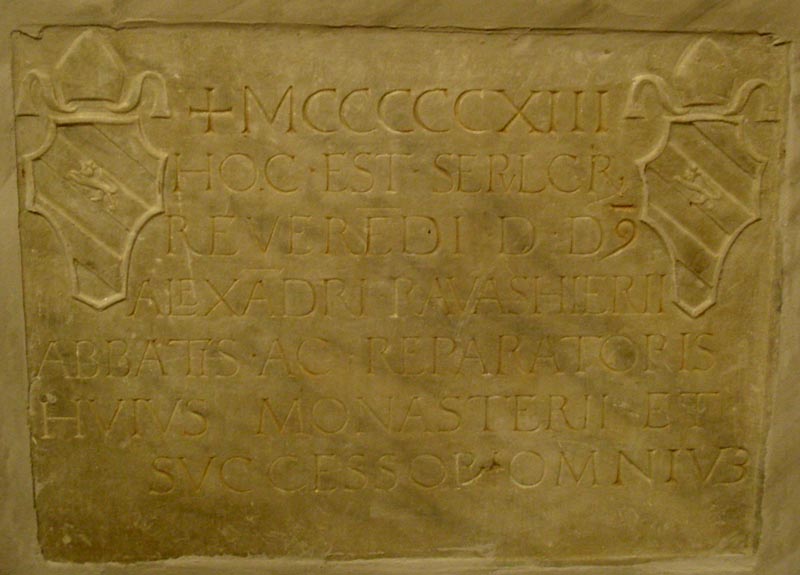 +MCCCCCXIII
HOC·EST·SEPVLCR
REVERĒDI D·D9
ALEXĀDRI RAVASHIERII
ABBATIS·AC·REPARATORIS
HVIVS MONASTERII ET
SVCCESSOR·OMNIVƷ